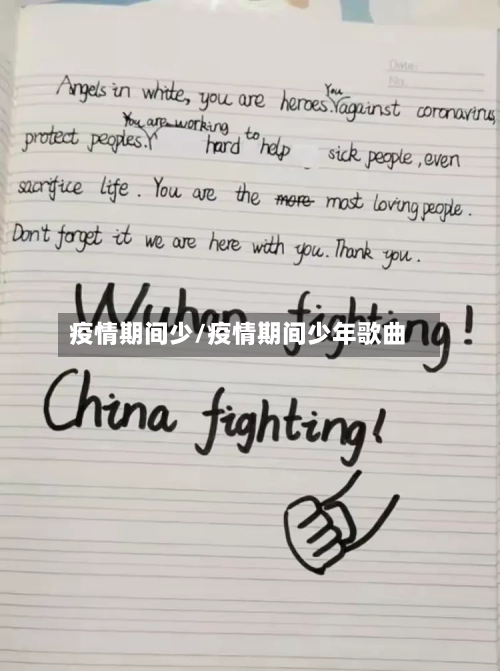 Date:
No.
Angels in white, you are heroes. You against coronavirus,
protect peoples. You are working hard to help sick people, even
sacrifice life. You are the more most loving people.
Don't forget it we are here with you. Thank you.
Wuhan fighting!
疫情期间少/疫情期间少年歌曲
China fighting!